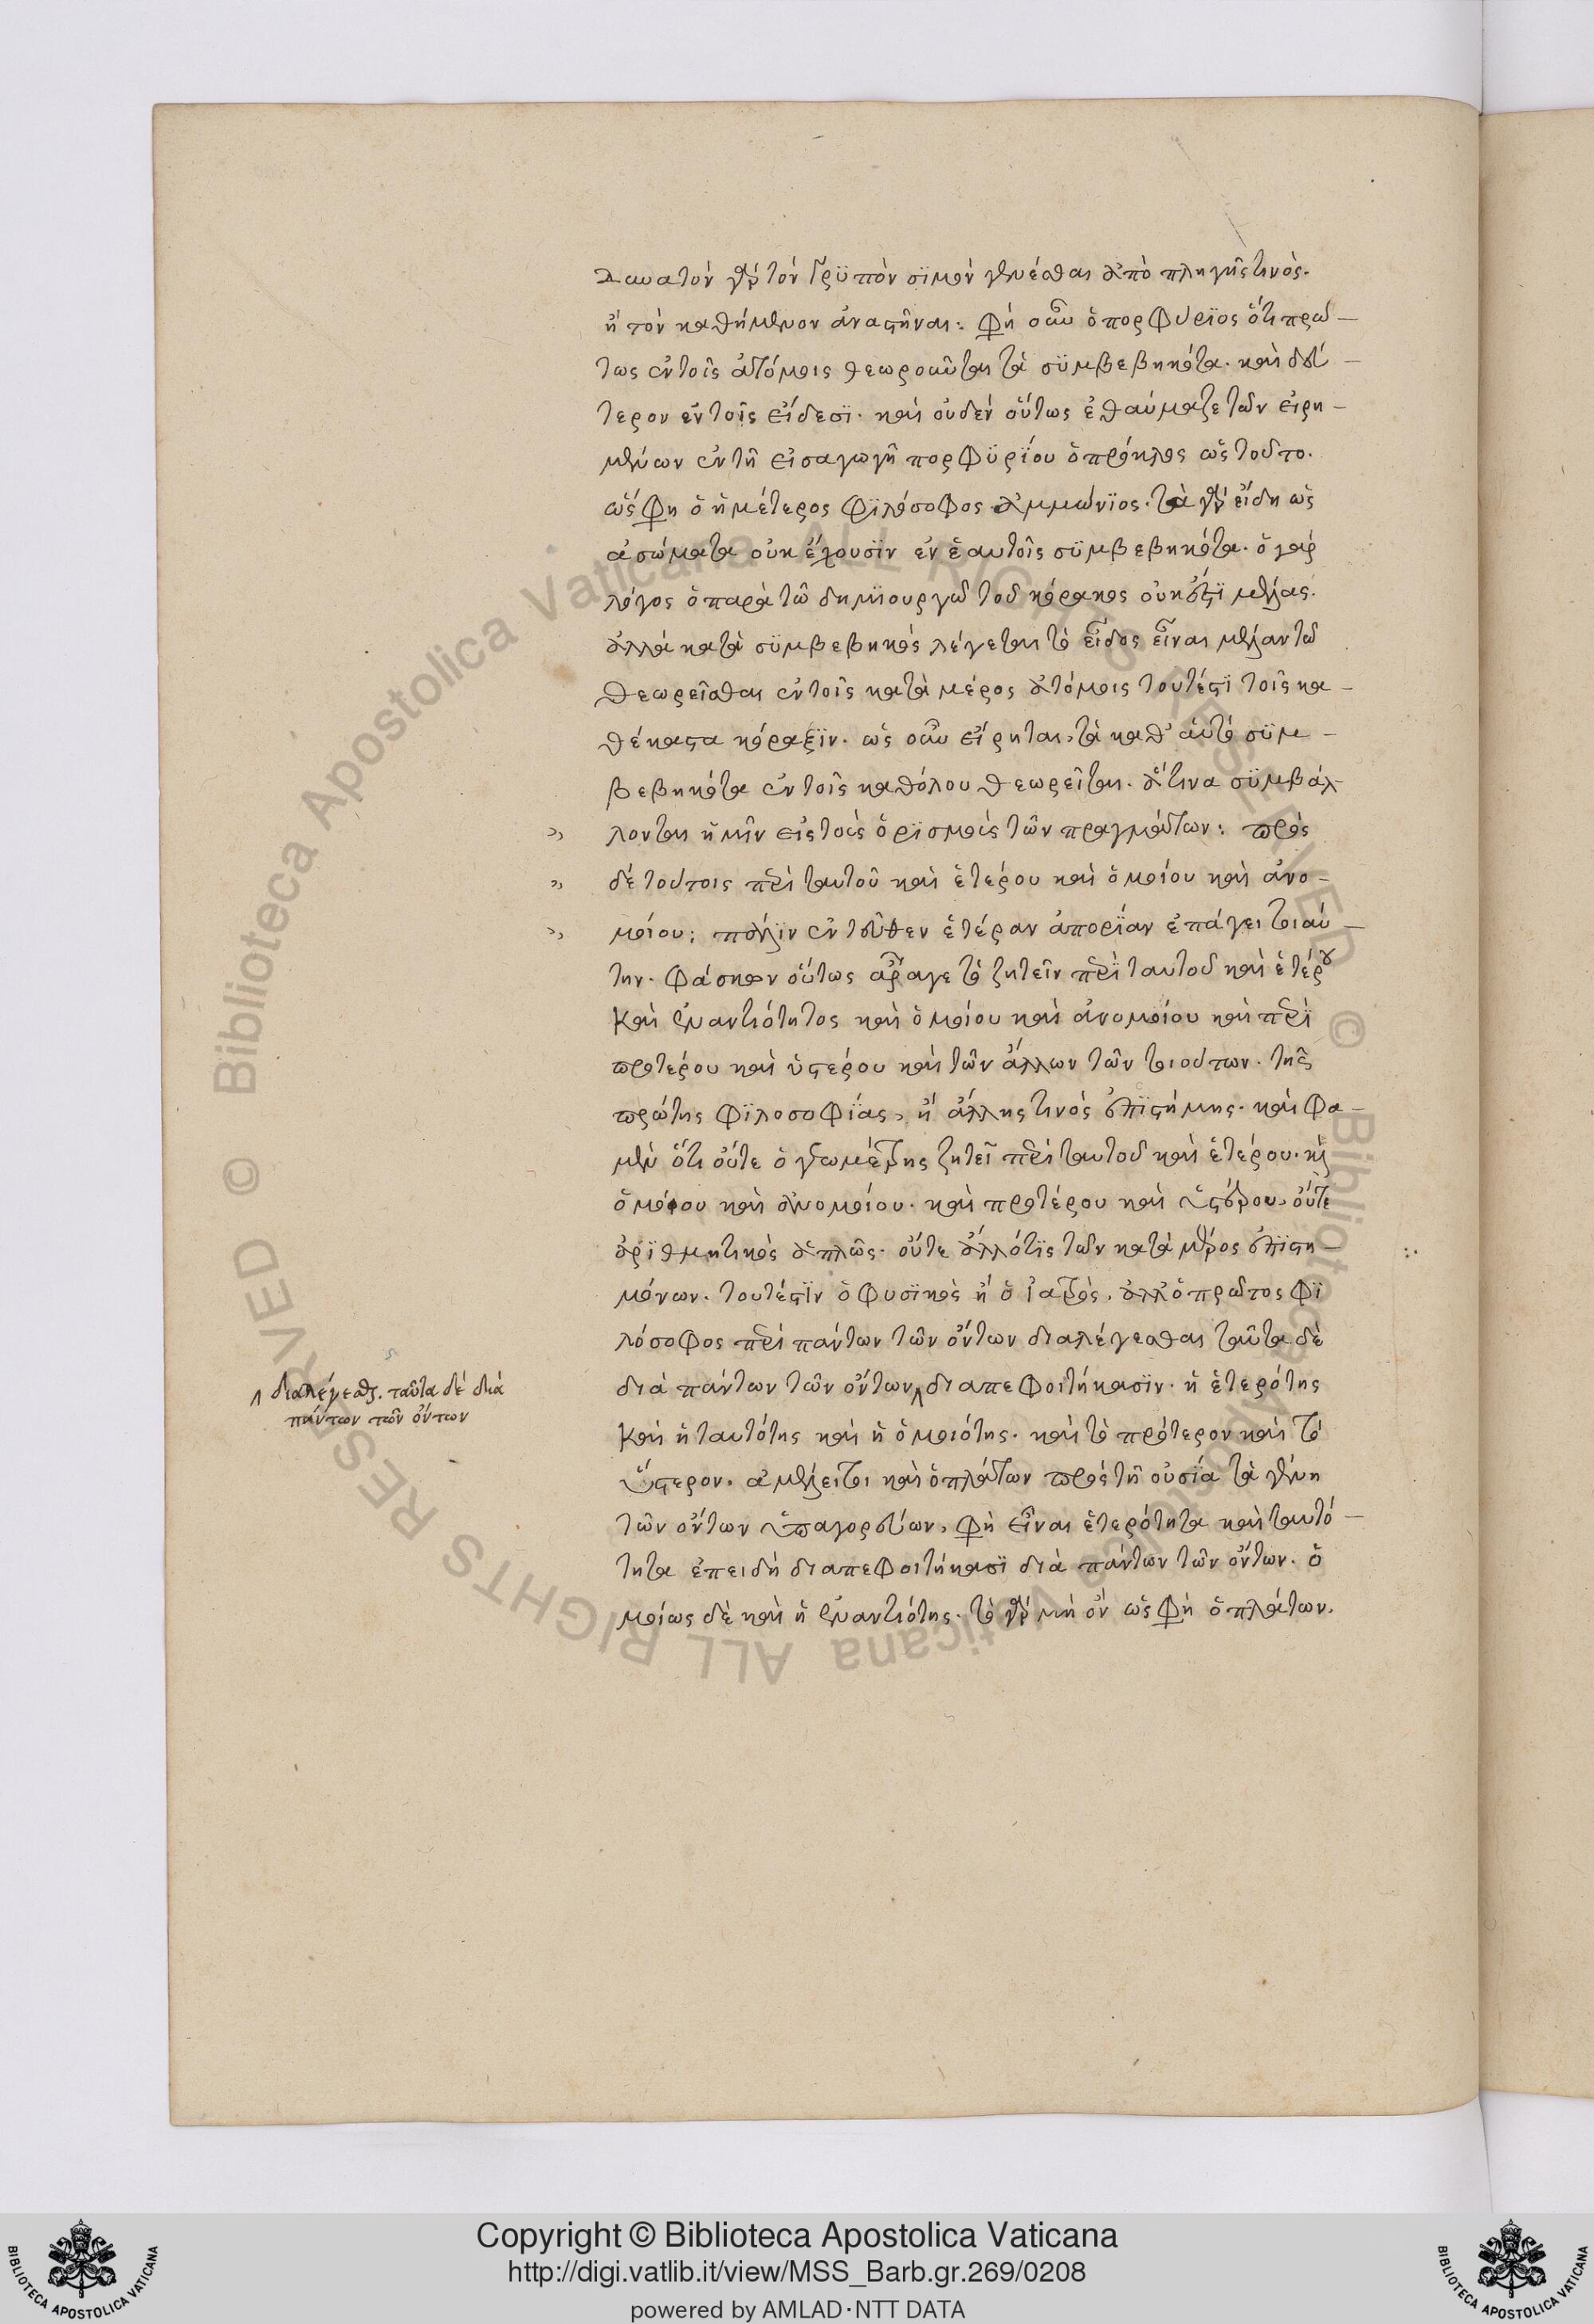 δυνατὸν γὰρ τὸν γρϋπὸν σϊμὸν γενέσθαι ἀπὸ πληγῆς τινός.
ἢ τὸν καθήμενον ἀναστῆναι: φησὶ οὖν ὁ πορφύρϊος ὅτι πρώ-
τως ἐν τοῖς ἀτόμοις θεωροῦνται τὰ σϋμβεβηκότα. καὶ δεύ-
τερον ἐν τοῖς εἴδεσϊ. καὶ οὐδὲν οὕτως ἐθαύμαζε τῶν εἰρη-
μένων ἐν τῆ εἰσαγωγῆ πορφϋρΐου ὁ πρόκλος ὡς τοῦτο.
ὥς φησι ὁ ἡμέτερος φϊλόσοφος ἀμμώνϊος. τὰ γὰρ εἴδη ὡς
ἀσώματα οὐκ ἔχουσϊν ἐν ἑαυτοῖς σϋμβεβηκότα. ὁ γὰρ
λόγος ὁ παρὰ τῶ δημϊουργῶ τοῦ κόρακος οὐκ ἔστϊ μέλας.
ἀλλὰ κατὰ σϋμβεβηκός λέγεται τὸ εἶδος εἶναι μέλαν τῶ
θεωρεῖσθαι ἐν τοῖς κατὰ μέρος ἀτόμοις τουτέστϊ τοῖς κα-
θέκαστα κόραξϊν. ὡς οὖν εἴρηται, τὰ καθ' αὑτὸ σϋμ-
βεβηκότα ἐν τοῖς καθόλου θεωρεῖται. ἅτινα σϋμβάλ-
λονται ἡμῖν εἰς τοὺς ὁρϊσμοὺς τῶν πραγμάτων: πρὸς
δὲ τούτοις περὶ ταυτοῦ καὶ ἑτέρου καὶ ὁμοίου καὶ ἀνο-
μοίου: πάλϊν ἐντεῦθεν ἑτέραν ἀπορΐαν ἐπάγει τοιαύ-
την. φάσκων οὕτως ἆραγε τὸ ζητεῖν περὶ ταυτοῦ καὶ ἑτέρου
καὶ ἐναντιότητος καὶ ὁμοίου καὶ ἀνομοίου καὶ περὶ
προτέρου καὶ ὑστέρου καὶ τῶν ἄλλων τῶν τοιούτων. τῆς
πρώτης φϊλοσοφΐας, ἢ ἄλλης τινὸς ἐπϊστήμης. καὶ φα-
μὲν ὅτι οὔτε ὁ γεωμέτρης ζητεῖ περὶ ταυτοῦ καὶ ἑτέρου. καὶ
ὁμοίου καὶ ἀνομοίου. καὶ προτέρου καὶ ὑστέρου, οὔτε
ἀρϊθμητικὸς ἁπλῶς. οὔτε ἄλλός τϊς τῶν κατὰ μέρος ἐπϊστη-
μόνων. τουτέστϊν ὁ φυσϊκὸς ἢ ὁ ἰατρός, ἀλλ' ὁ πρῶτος φϊ
λόσοφος περὶ πάντων τῶν ὄντων διαλέγεσθαι ταῦτα δὲ
διὰ πάντων τῶν ὄντων ⸝ διαπεφοιτήκασϊν. ἡ ἑτερότης
καὶ ἡ ταυτότης καὶ ἡ ὁμοιότης. καὶ τὸ πρότερον καὶ τὸ
ὕστερον. ἀμέλειτοι καὶ ὁ πλάτων πρὸς τῆ οὐσία τὰ γένη
τῶν ὄντων ὑπαγορεύων, φησὶ εἶναι ἑτερότητα καὶ ταυτό-
τητα ἐπειδὴ διαπεφοιτήκασϊ διὰ πάντων τῶν ὄντων. ὁ
μοίως δὲ καὶ ἡ ἐναντιότης. τὸ γὰρ μὴ ὂν ὥς φησὶ ὁ πλάτων.
⸝ διαλέγεσθαι. ταῦτα δὲ διὰ
πάντων τῶν ὄντων
© Biblioteca Apostolica Vaticana ALL RIGHTS RESERVED © Biblioteca Apostolica Vaticana ALL RIGHTS RESERVED
Copyright © Biblioteca Apostolica Vaticana
http://digi.vatlib.it/view/MSS_Barb.gr.269/0208
powered by AMLAD·NTT DATA
BIBLIOTECA APOSTOLICA VATICANA
BIBLIOTECA APOSTOLICA VATICANA